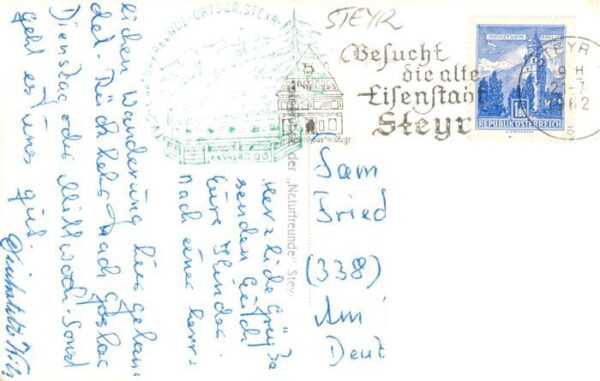 STEYR
Besucht
die alte
Eisenstadt
Steyr
STEYR
21-7
1962
REPUBLIK ÖSTERREICH
der „Naturfreunde" Steyr
Fam
Fried
(338)
Am
Deut
Herzliche Grüße
senden Euch
Eure Kinder.
Nach einer herr-
lichen Wanderung hier gelan-
det. Rückkehr nach Goslar
Dienstag oder Mittwoch. Sonst
geht es uns gut.